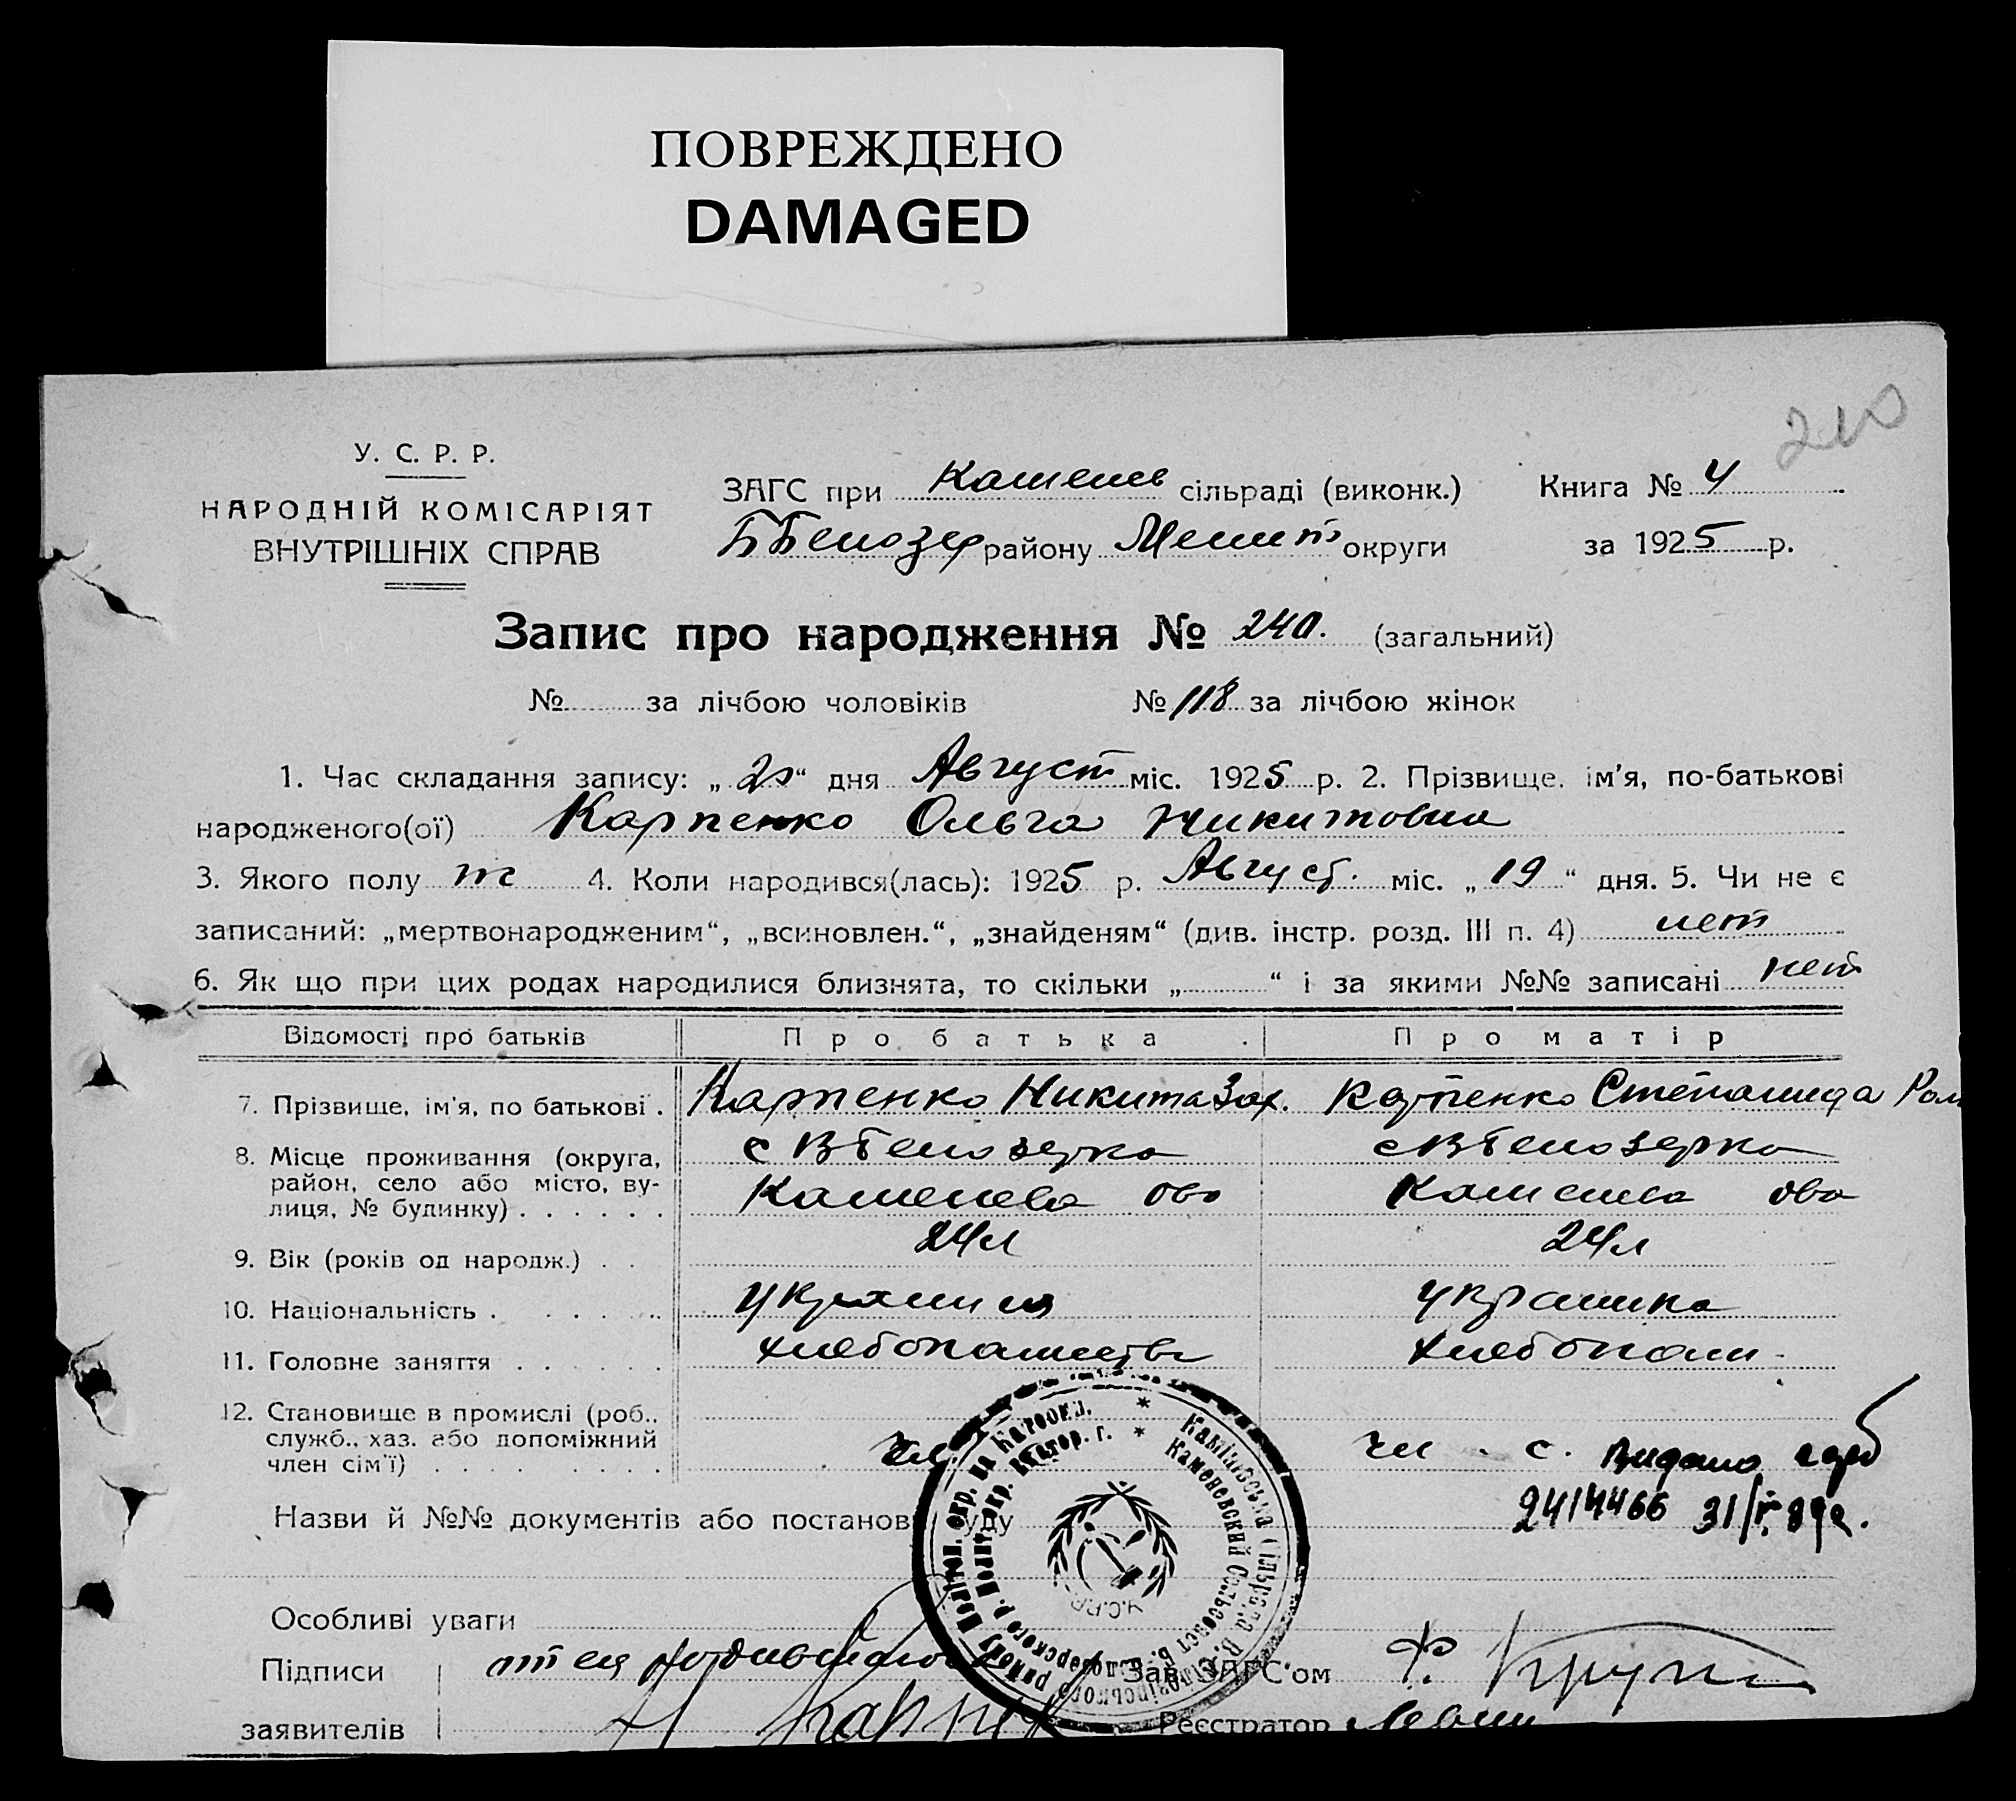 ПОВРЕЖДЕНО
DAMAGED
210
У. С. Р. Р.
НАРОДНІЙ КОМІСАРІЯТ
ВНУТРІШНІХ СПРАВ
ЗАГС при Каменев сільраді (виконк.) Книга № 4
ББелозер району Мелит округи за 1925 р.
Запис про народження № 240. (загальний)
№ за лічбою чоловіків № 118 за лічбою жінок
1. Час складання запису: „20“ дня Август міс. 1925 р. 2. Прізвище, ім'я, по-батькові
народженого(ої) Карпенко Ольга Никитовна
3. Якого полу ж 4. Коли народився(лась): 1925 р. Август. міс. „19“ дня. 5. Чи не є
записаний: „мертвонародженим“, „всиновлен.“, „знайденям“ (див. інстр. розд. III п. 4) нет
6. Як що при цих родах народилися близнята, то скільки „ “ і за якими №№ записані нет
Відомості про батьків Про батька Про матір
7. Прізвище, ім'я, по батькові . Карпенко Никита Зах. Карпенко Степанида Ром
8. Місце проживання (округа, с В Белозерка с В Белозерка
район, село або місто, ву-
лиця, № будинку) . . . . . . Каменева ова Каменева ова
9. Вік (років од народж.) . . 24л 24л
10. Національність . . . . . . украинц украинка
11. Головне заняття . . . . . . хлебопашеств хлебопаш-
12. Становище в промислі (роб.,
служб., хаз. або допоміжний
член сім'ї) . . . . . . . чл чл . с. Видано
2414466 31/
Назви й №№ документів або постанов суду
Особливі уваги
Підписи Зав. ЗАГС'ом Ф. Круп
заявителів Н Карпен Реєстратор
Камінівська Сільрада В. Білозірського району Мелітоп. окр. на Катеосл.
Каменевский Сельсовет Б. Белозерского р. Мелит. окр. Екатер. г.
У.С.Р.Р.